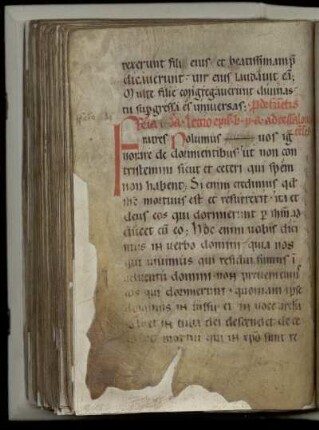 rexerunt filii eius et beatissimam p
dicauerunt · uir eius laudauit eā ·
Multe filie congregauerunt diuitias
tu sup gressa es uniuersas · P defūctis
Feria Lectio epłe b. p. a. ad
Fratres Nolumus uos ig
norare de dormientibus ut non con
tristemini sicut et ceteri qui spem
non habent · Si enim credimus qđ
ihc mortuus est et resurrexit · ita et
deus eos qui dormierunt p ihm ad
ducet cū eo · Hoc enim uobis dici
mus in uerbo domini quia nos
qui uiuimus qui residui sumus ī
aduentū domini non preueniem
eos qui dormierunt · quoniam ipse
dominus in iussu et in uoce archā
et in tuba dei descendet de ce
mortui qui in xpo sunt re